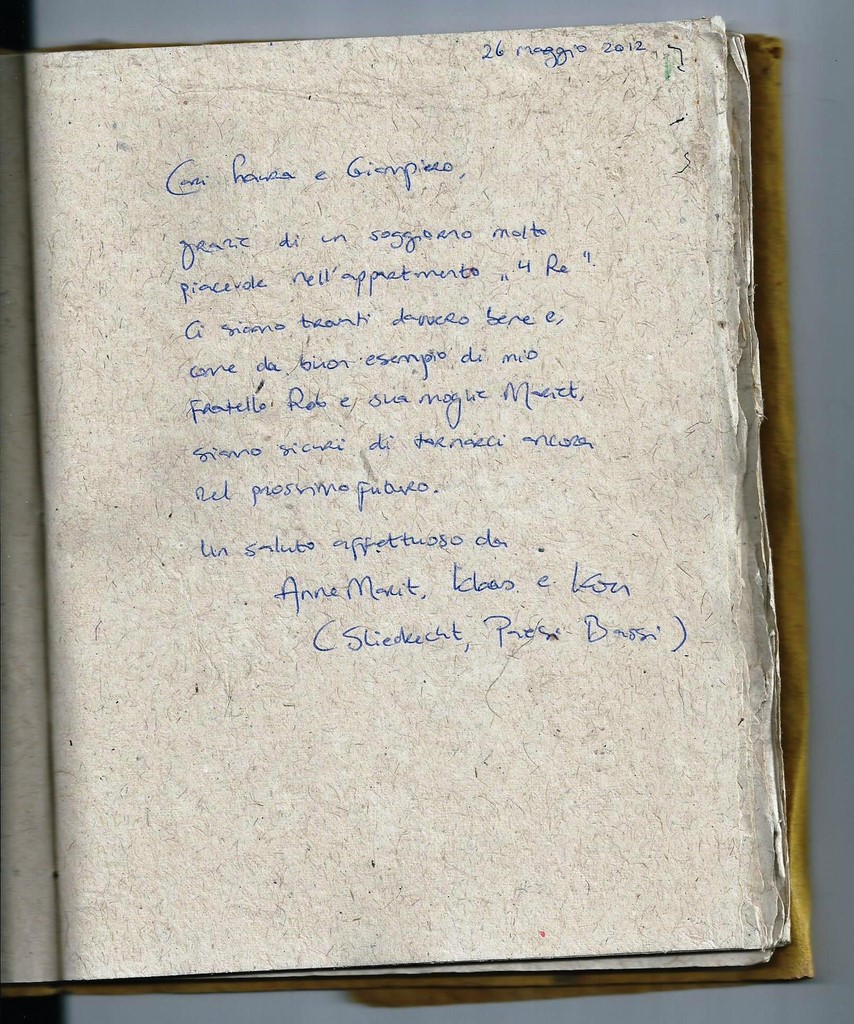 26 maggio 2012
Cari Laura e Gianpiero,
grazie di un soggiorno molto
piacevole nell'appartmento „4 Re".
Ci siamo trovati davvero bene e,
come da buon esempio di mio
fratello Rob e sua moglie Mariet,
siamo sicuri di tornarci ancora
nel prossimo futuro.
Un saluto affettuoso da
AnneMarit, Klaas e Koen
(Sliedrecht, Paesi Bassi)